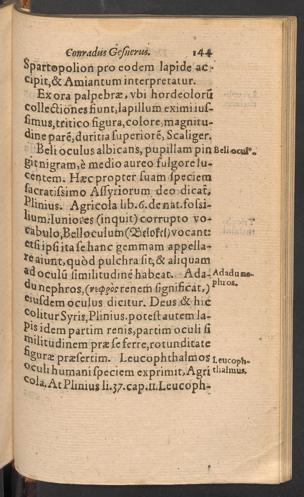 Conradus Gesnerus. 144
Spartopolion pro eodem lapide ac-
cipit, & Amiantum interpretatur.
Ex ora palpebræ, vbi hordeolorũ
collectiones fiunt, lapillum eximi iuſ-
ſimus, tritico figura, colore, magnitu-
dine parẽ, duritia ſuperiorẽ, Scaliger.
Beli oculus albicans, pupillam pin
git nigram, è medio aureo fulgore lu-
centem. Hæc propter ſuam ſpeciem
ſacratiſsimo Aſſyriorum deo dicãt,
Plinius. Agricola lib. 6. de nat. foſsi-
lium: Iuniores (inquit) corrupto vo-
cabulo, Belloculum (Belofel) vocant:
etſi ipſi ita ſe hanc gemmam appella-
re aiunt, quòd pulchra ſit, & aliquam
ad oculũ ſimilitudinẽ habeat. Ada-
dunephros, (νεφρὸς renem ſignificat,)
eiuſdem oculus dicitur. Deus & hic
colitur Syris, Plinius. poteſt autem la-
pis idem partim renis, partim oculi ſi
militudinem præ ſe ferre, rotunditate
figuræ præſertim. Leucophthalmos
oculi humani ſpeciem exprimit, Agri
cola. At Plinius li. 37. cap. 11. Leucoph-
Beli ocul⁹.
Adadune-
phros.
Leucoph-
thalmus.